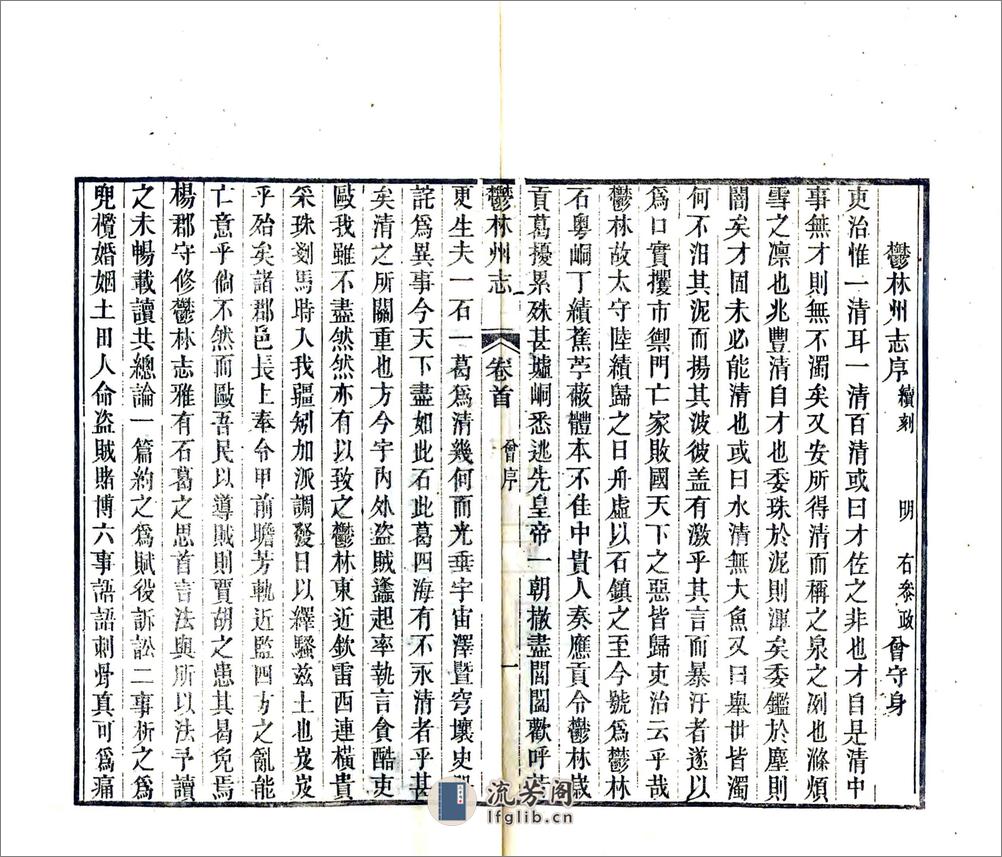 鬱林州志序 續刻 明 右參政 曾守身
吏治惟一清耳一清百清或曰才佐之非也才自是清中
事無才則無不濁矣又安所得清而稱之泉之冽也滌煩
雪之凛也兆豐清自才也委珠於泥則渾矣委鑑於塵則
闇矣才固未必能清也或曰水清無大魚又曰舉世皆濁
何不汨其泥而揚其波彼盖有激乎其言而暴汙者遂以
爲口實攫市禦門亡家敗國天下之惡皆歸吏治云乎哉
鬱林故太守陸績歸之日舟虛以石鎭之至今號爲鬱林
石粤峒丁績蕉苧薇體本不佳中貴人奏應貢令鬱林歲
貢葛擾累殊甚墟峒悉逃先皇帝一朝撤盡閭閻歡呼
鬱林州志 卷首 曾序 一
更生夫一石一葛爲清幾何而光垂宇宙澤曁穹壤史
詫爲異事今天下盡如此石此葛四海有不永清者乎甚
矣清之所關重也方今宇內外盗賊蠭起率執言貪酷吏
毆我雖不盡然然亦有以致之鬱林東近欽雷西連橫貴
采珠剡馬時入我疆矧加派調發日以繹騷兹土也岌岌
乎殆矣諸郡邑長上奉令甲前瞻芳軌近監四方之亂能
亡意乎倘不然而毆吾民以導賊則賈胡之患其曷免焉
楊郡守修鬱林志雅有石葛之思首言法與所以法予讀
之未暢載讀共總論一篇約之爲賦役訴訟二事析之爲
兠欖婚姻土田人命盗賊賭博六事語語刺骨真可爲痛
流芳阁
lfglib.cn